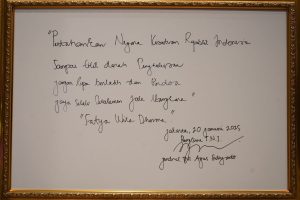 "Pertahankan Negara Kesatuan Republik Indonesia
Sampai titik darah Penghabisan
jangan lupa berlatih dan Berdoa
jaya Selalu Pasukanku Jala Mangkara"
"Satya Wira Dharma"
Jakarta, 20 Januari 2025
Panglima TNI
Jenderal TNI Agus Subiyanto